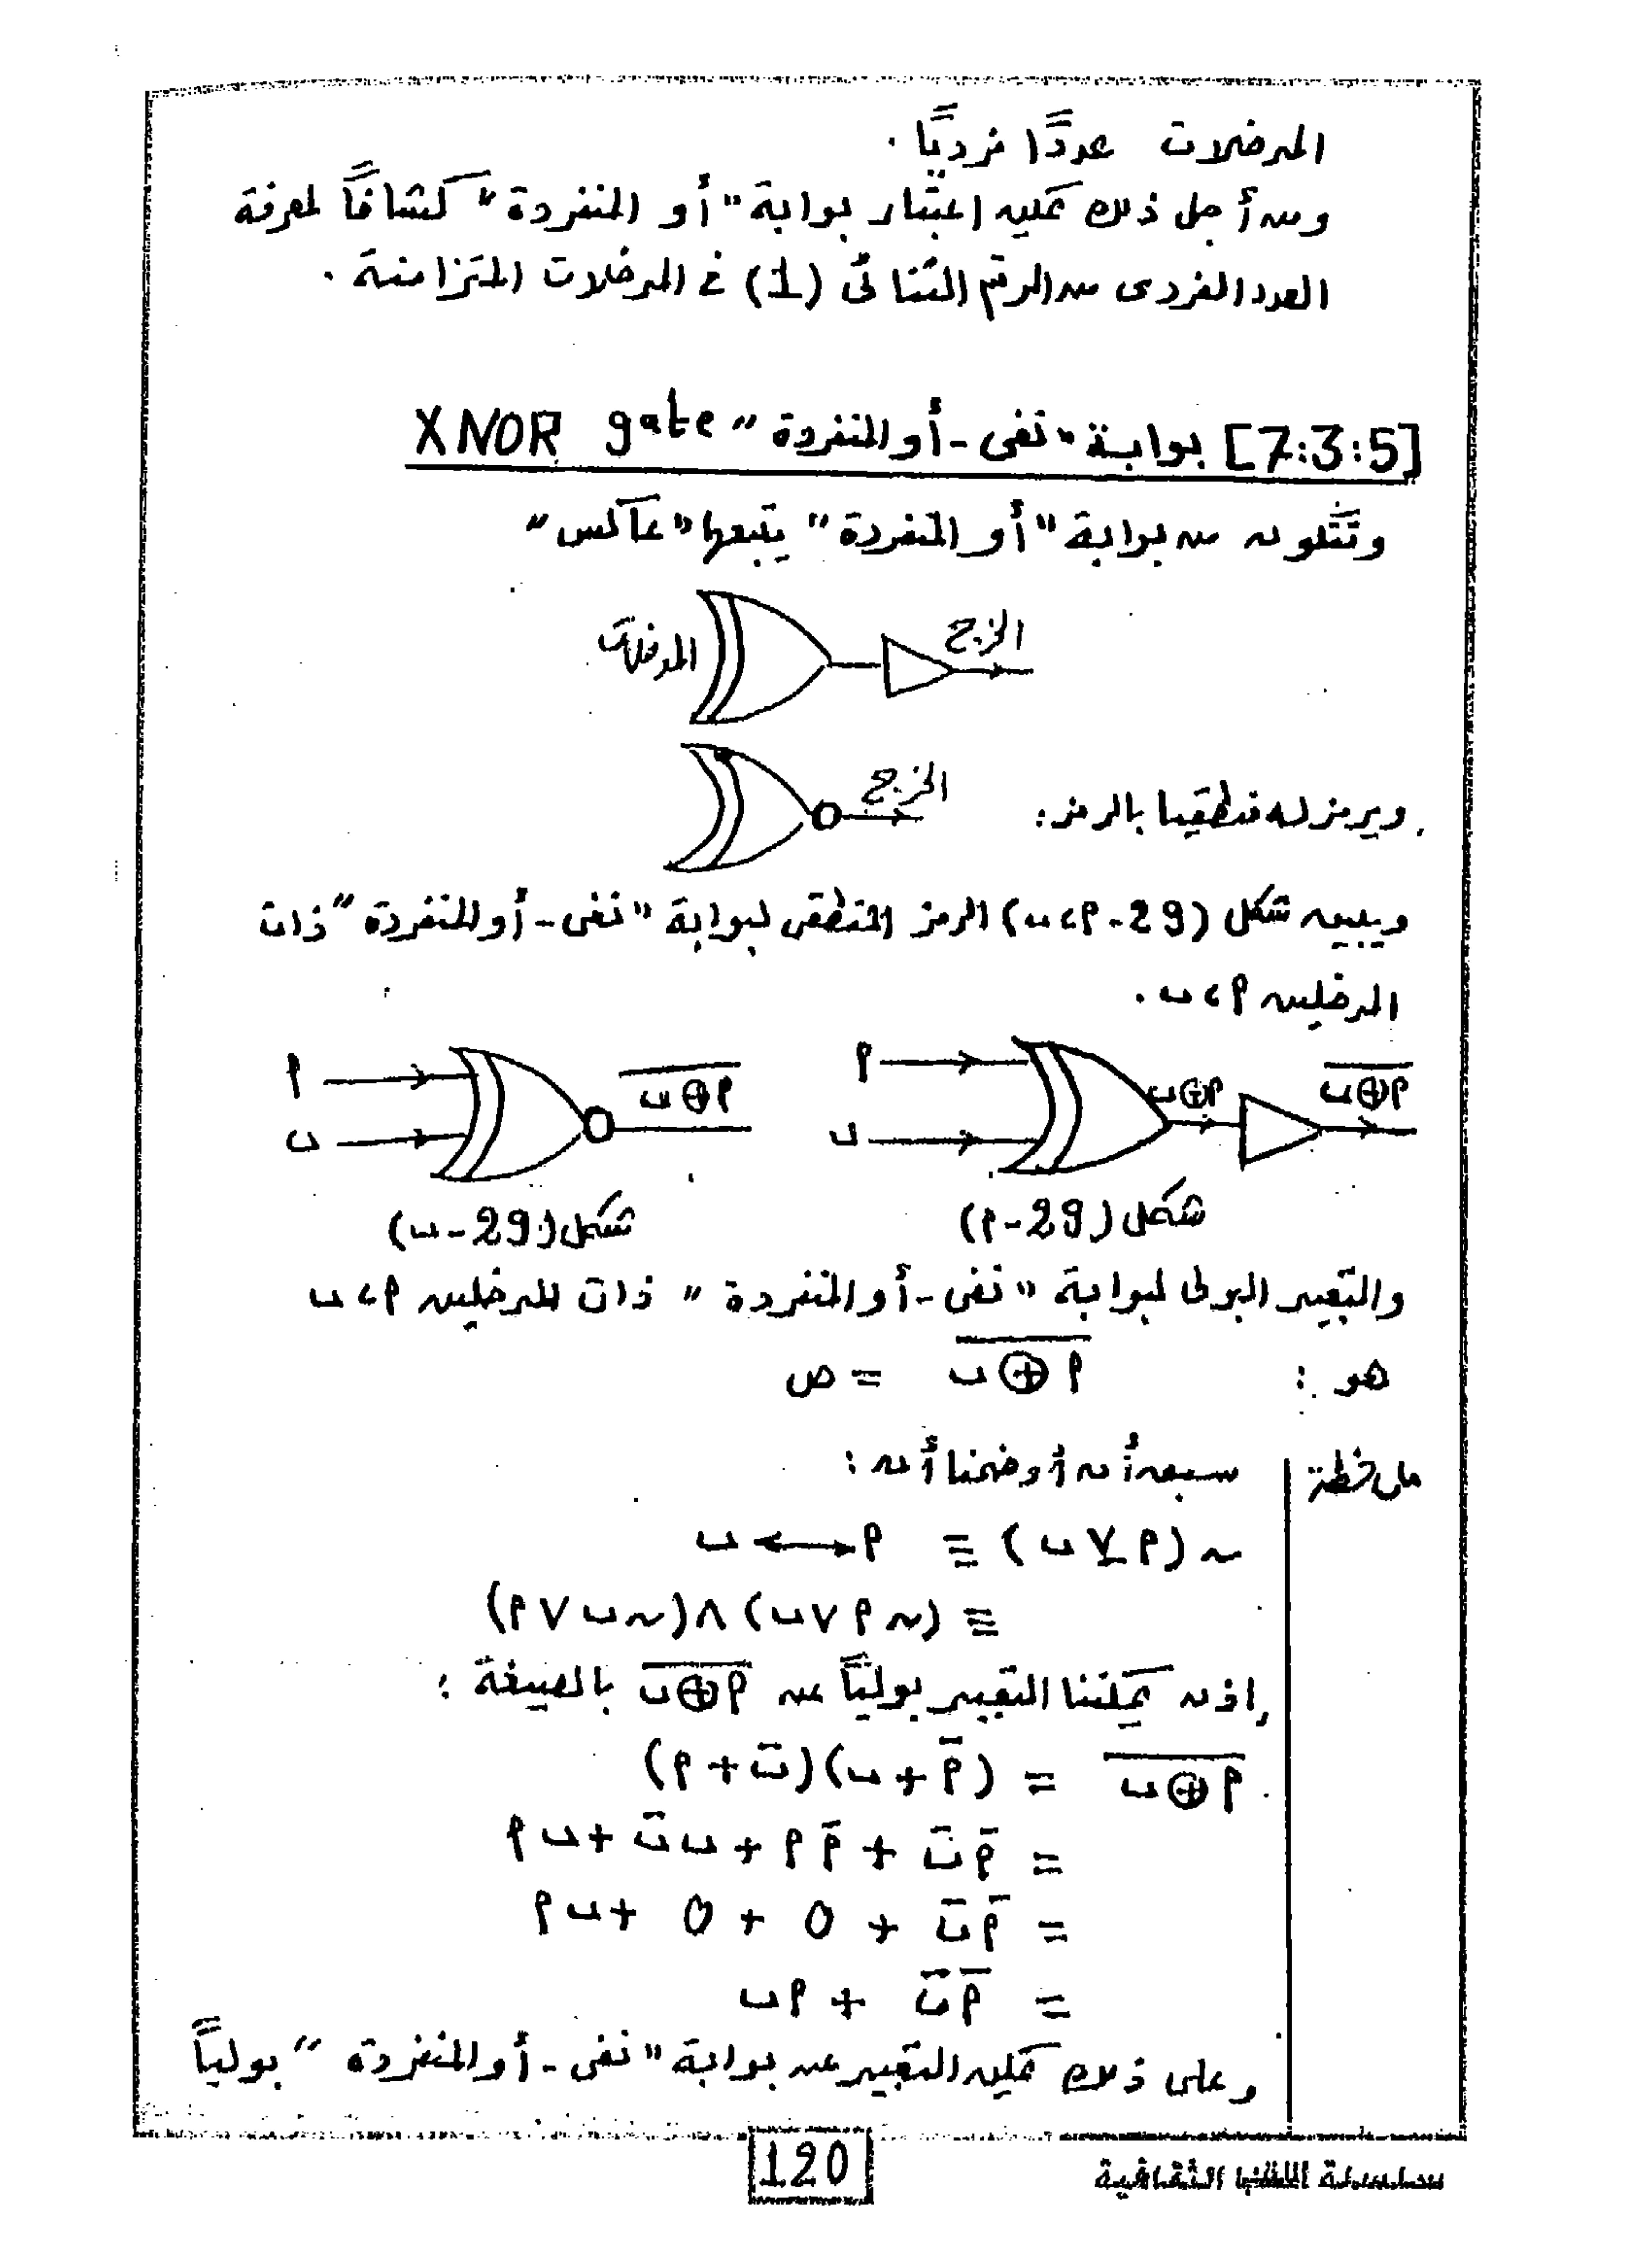 المدخلات عددًا فرديًا .
ومن أجل ذلك يمكن اعتبار بوابة "أو المنفردة" كشافًا لمعرفة
العدد الفردى من الرقم الثنائى (1) فى المدخلات المتزامنة .
[7:3:5] بوابة "نفى - أو المنفردة" XNOR gate
وتتكون من بوابة "أو المنفردة" يتبعها "عاكس"
المدخلات الخرج
ويرمز له منطقيا بالرمز: الخرج
ويبين شكل (29 - أ ، ب) الرمز المنطقى لبوابة "نفى - أو المنفردة" ذات
المدخلين أ ، ب .
أ ب أ⊕ب \overline{أ⊕ب}
أ ب \overline{أ⊕ب}
شكل (29 - أ) شكل (29 - ب)
والتعبير البولى لبوابة "نفى - أو المنفردة" ذات المدخلين أ ، ب
هو : \overline{أ ⊕ ب} = ص
ملاحظة | سبق أن أوضحنا أن :
~ (أ ⊻ ب) ≡ أ ⟷ ب
≡ (~ أ ∨ ب) ∧ (~ ب ∨ أ)
إذن يمكننا التعبير بوليًا عن \overline{أ⊕ب} بالصيغة :
\overline{أ⊕ب} = (أ̄ + ب)(ب̄ + أ)
= أ̄ ب̄ + أ̄ أ + ب ب̄ + ب أ
= أ̄ ب̄ + 0 + 0 + ب أ
= أ̄ ب̄ + أ ب
وعلى ذلك يمكن التعبير عن بوابة "نفى - أو المنفردة" بوليًا
120
سلسلة الكتب الثقافية